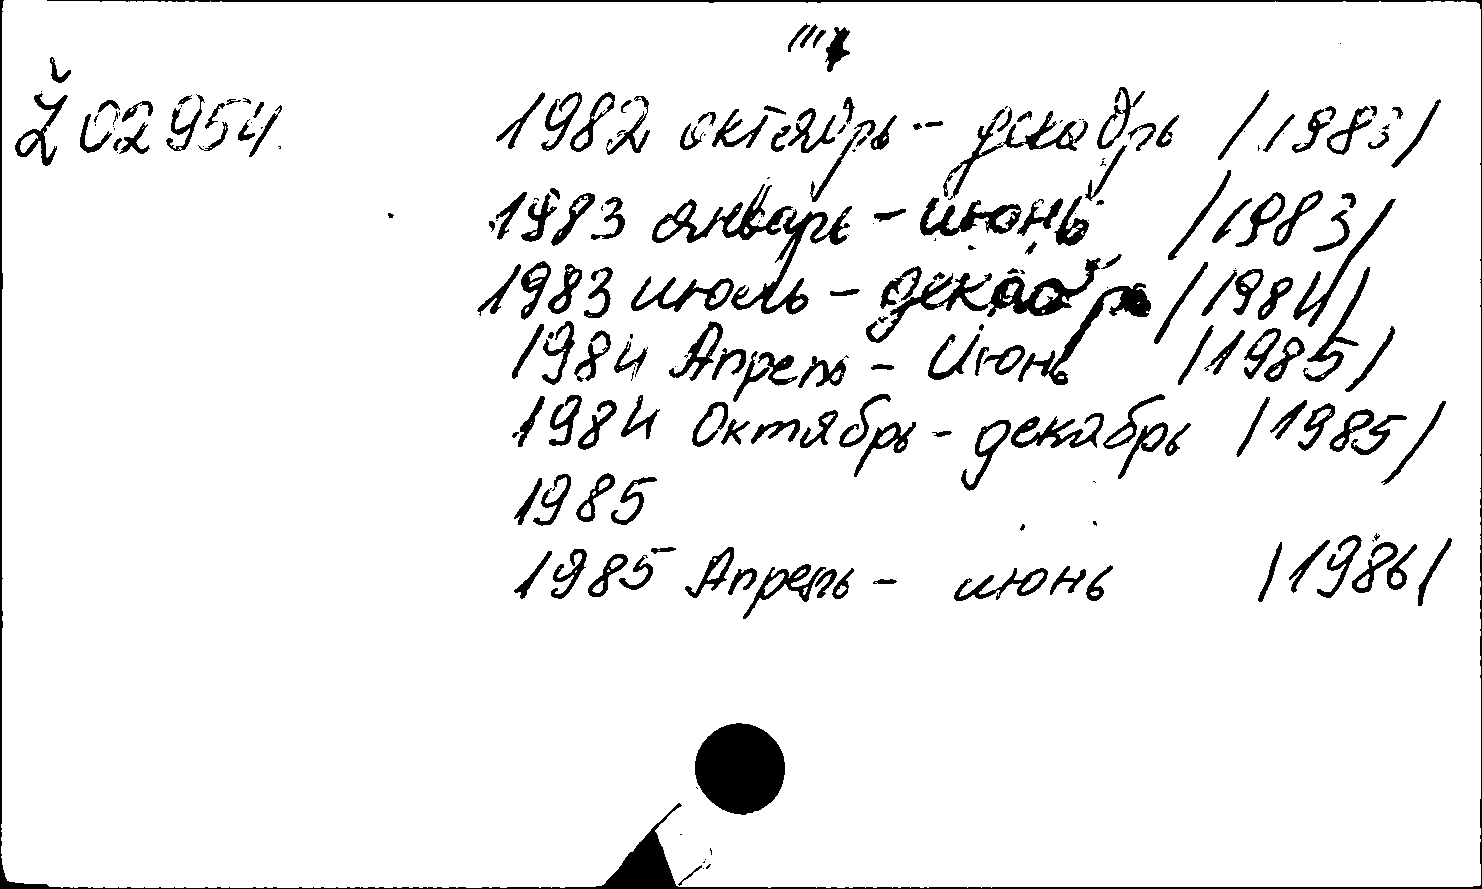 Ž 02954
1982 октябрь - декабрь /1983/
1983 январь - июнь /1983/
1983 июль - декабрь /1984/
1984 Апрель - Июнь /1985/
1984 Октябрь - декабрь /1985/
1985
1985 Апрель - июнь /1986/